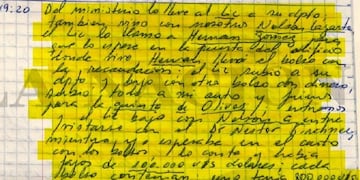 19:20 Del ministerio lo llevé al Lic. a su dpto,
también vino con nosotros Nelson Lazarte,
el Lic lo llamó a Hernan Gomez
que lo espere en la puerta del edificio
donde vive, Hernan, llevó el bolso con
la recaudación, el Lic subio a su
dpto y bajó con otro bolso con dinero,
subió todo a mi auto y fuimos
para la quinta de Olivos, entramos
y el Lic bajó con Nelson a entre
vistarse con el Dr Nestor Kirchner,
mientras yo esperaba en el auto
con los bolsos
fajos de 100.000 u$s dolares; cada
bolso contenian 800.000 u$s